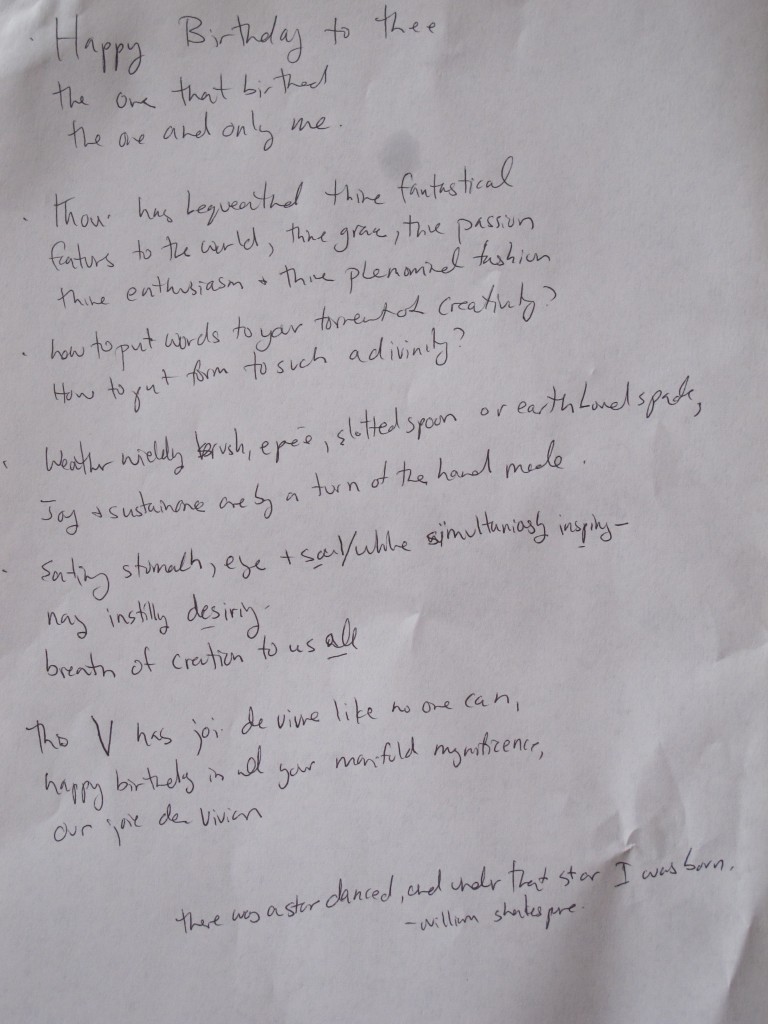 Happy Birthday to thee
the one that birthed
the one and only me.
Thou has bequeathed thine fantastical
featurs to the world, thine grace, thine passion
thine enthusiasm + thine plenominel fashion
how to put words to your torrent of creativity?
How to put form to such a divinity?
Weather wieldy brush, epée, slotted spoon or earth loved spade,
Joy + sustainance are by a turn of the hand made.
Sating stomach, eye + soul/while simultaniasly inspiring-
nay instilling desiring-
breath of creation to us all
Tho V has joi de vivre like no one can,
happy birthday in all your manifold magnifizence,
our joie de Vivian
there was a star danced, and under that star I was born.
-william shakespere.